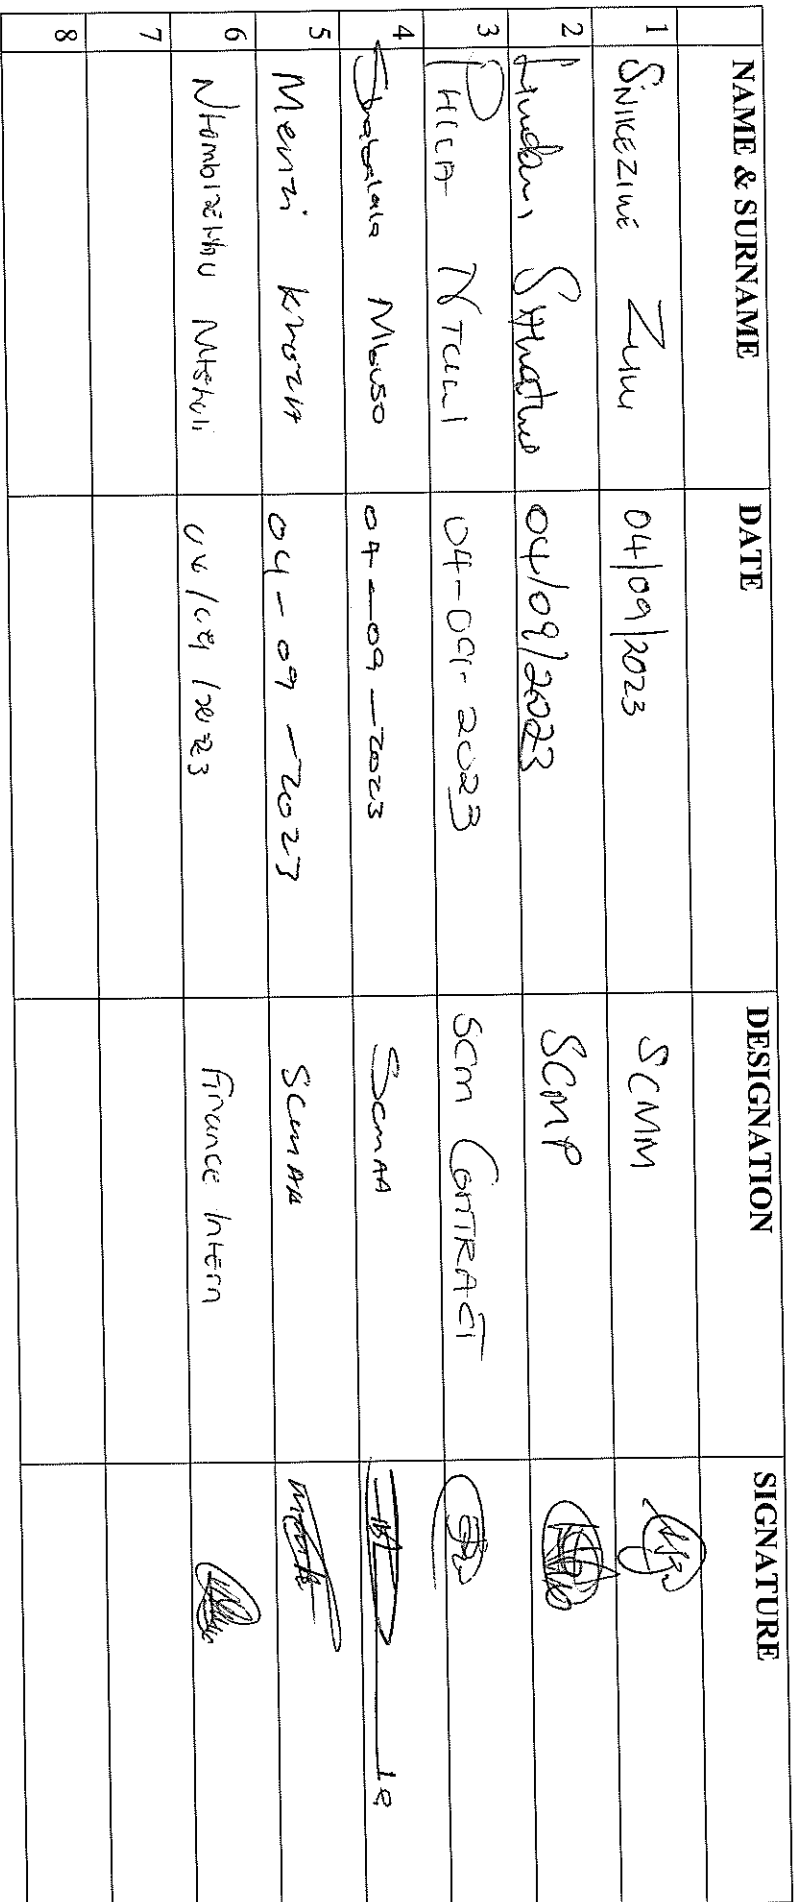 NAME & SURNAME DATE DESIGNATION SIGNATURE
1 SNIKEZIWE ZULU 04/09/2023 SCMM
2 04/09/2023 SCMP
3 NTULI 04-09-2023 SCM CONTRACT
4 Shabalala Mbuso 04-09-2023 SCMAA
5 Menzi KHOZA 04-09-2023 SCMAA
6 Mtshali Finance Intern
7
8